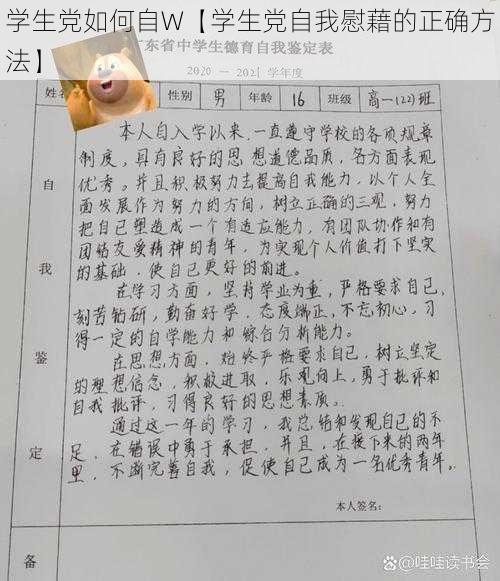 学生党如何自W【学生党自我慰藉的正确方
法】
广东省中学生德育自我鉴定表
2020 — 2021 学年度
姓名 性别 男 年龄 16 班级 高一(22)班
自我鉴定
本人自入学以来,一直遵守学校的各项规章
制度,具有良好的思想道德品质,各方面表现
优秀。并且积极努力去提高自我能力,以个人全
面发展作为努力的方向,树立正确的三观,努力
把自己塑造成一个有适应能力,有团队协作和有
团结友爱精神的青年,为实现个人价值打下坚实
的基础,使自己更好的前进。
在学习方面,坚持学业为重,严格要求自己,
刻苦钻研,勤奋好学,态度端正,不忘初心,习
得一定的自学能力和综合分析能力。
在思想方面,始终严格要求自己,树立坚定
的理想信念,积极进取,乐观向上,勇于批评和
自我批评,习得良好的思想素质。
通过这一年的学习,我总结和发现自己的不
足,在错误中勇于承担,并且,在接下来的两年
里,不断完善自我,促使自己成为一名优秀青年。
本人签名:
备
@哇哇读书会